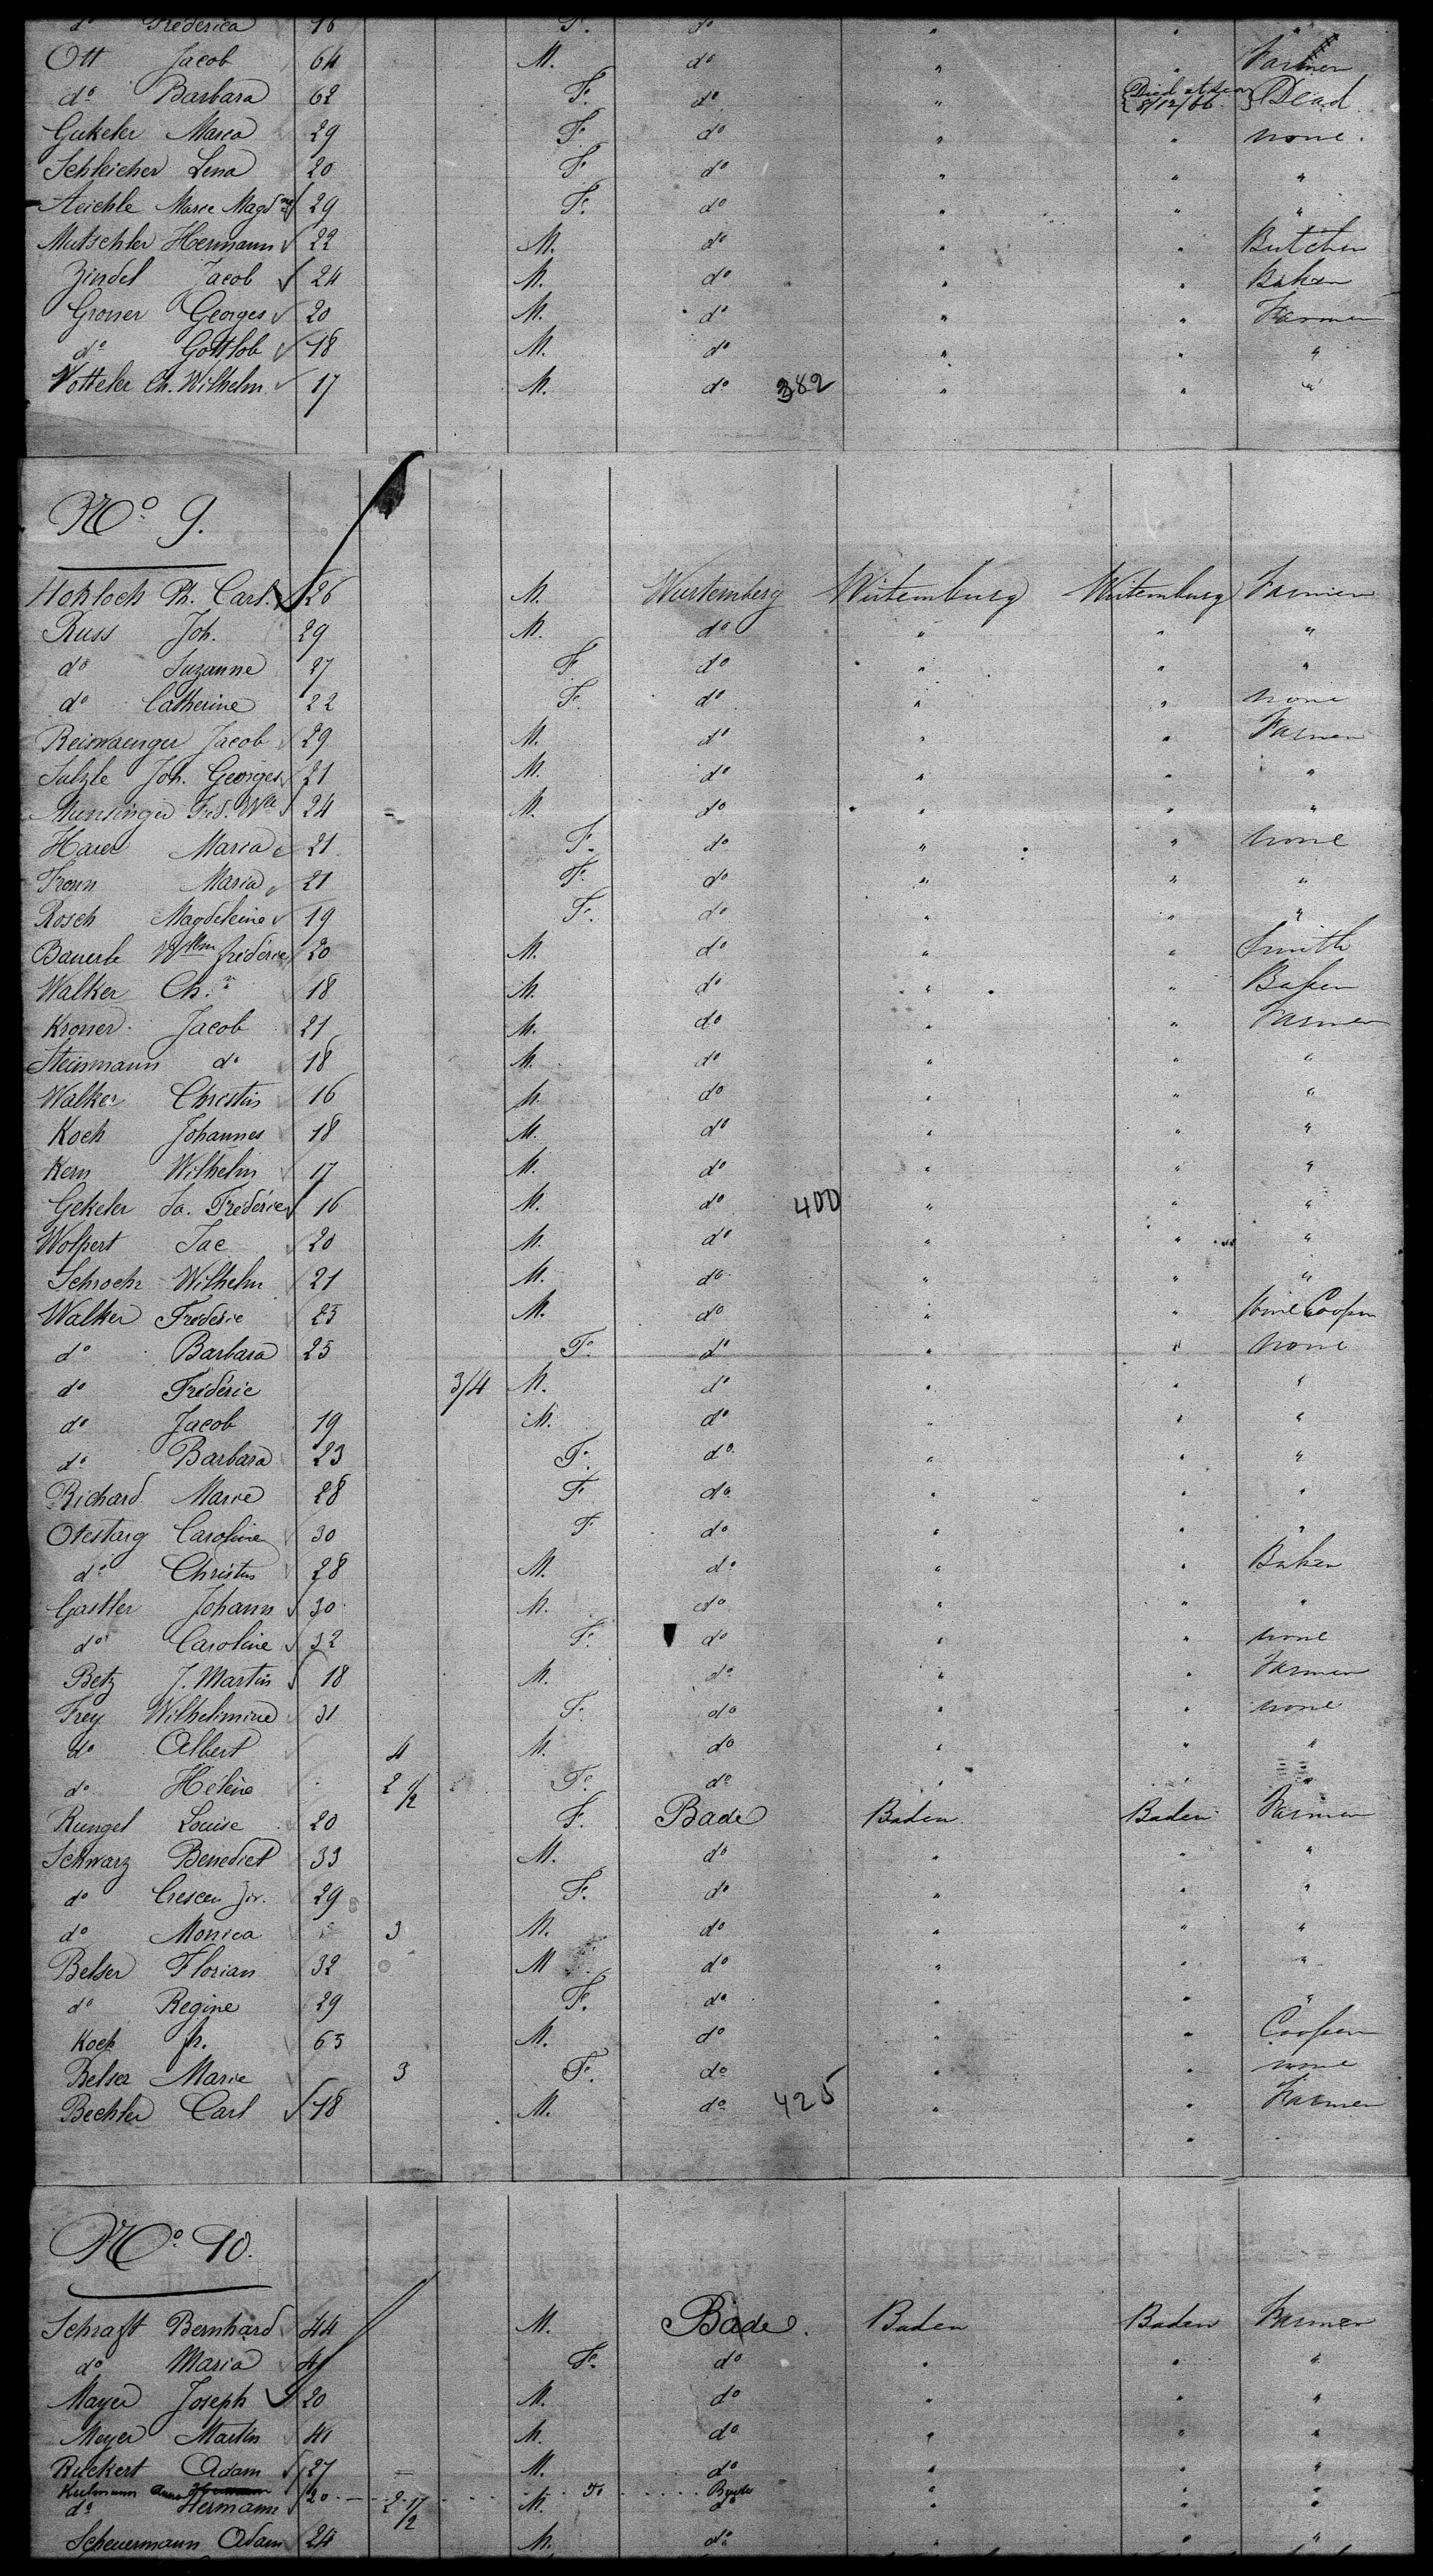 do Frederica 16 F. do " " "
Ott Jacob 64 M. do " " Farmer
do Barbara 62 F. do " { Died at sea 8/12/66 } Dead
Gukeler Maria 29 F. do " " none.
Schleicher Lena 20 F. do " " "
Aeichle Marie Magdne 29 F. do " " "
Mutschler Hermann 22 M. do " " Butcher
Zindel Jacob 24 M. do " " Baker
Groner Georges 20 M. do " " Farmer
do Gottlob 18 M. do " " "
Votteler Ch. Wilhelm 17 M. do 382 " " "
No 9.
Hohloch Ph. Carl. 26 M. Wurtemberg Wirtemburg Wirtemburg Farmer
Russ Joh. 29 M. do " " "
do Suzanne 27 F. do " " "
do Catherine 22 F. do " " none
Reiswaenger Jacob 29 M. do " " Farmer
Sulzle Joh. Georges 21 M. do " " "
Munsinger Frd. 24 M. do " " "
Hauer Maria 21 F. do " " none
Fronn Maria 21 F. do " " "
Rosch Magdeleine 19 F. do " " "
Bauerle Wilhm fridéric 20 M. do " " Smith
Walker Chn 18 M. do " " Baker
Kroner Jacob 21 M. do " " Farmer
Steinmann do 18 M. do " " "
Walker Christin 16 M. do " " "
Koch Johannes 18 M. do " " "
Kern Wilhelm 17 M. do " " "
Gekeler Ja. Frédéric 16 M. do 400 " " "
Wolpert Jac 20 M. do " " "
Schroehr Wilhelm 21 M. do " " "
Walker Frédéric 25 M. do " " Wine Cooper
do Barbara 25 F. do " " none
do Frédéric 3/4 M. do " " "
do Jacob 19 M. do " " "
do Barbara 23 F. do " " "
Richard Marie 28 F do " " "
Otestarg Caroline 30 F do " " "
do Christin 28 M. do " " Baker
Gastler Johann 30 M. do " " "
do Caroline 32 F. do " " none
Betz J. Martin 18 M. do " " Farmer
Frey Wilhelmine 31 F. do " " none
do Albert 4 M. do " " "
do Hélène 2 1/2 F. do " " "
Rungel Louise 20 F. Bade Baden Baden Farmer
Schwarz Benedict 33 M. do " " "
do Crescen 29 F. do " " "
do Monica 3 M. do " " "
Belser Florian 32 M do " " "
do Regine 29 F. do " " "
Koch 63 M. do " " Cooper
Belser Marie 3 F. do " " none
Bechler Carl 18 M. do 425 " " Farmer
"
No 10.
Schraft Bernhard 44 M. Bade. Baden Baden Farmer
do Maria F. do " " "
Mayer Joseph 20 M. do " " "
Meyer Martin 41 M. do " " "
Ruckert Adam 27 M. do " " "
Kulmann Anna 20 " " "
do Hermann 2 1/2 M. do " " "
Scheuermann Adam 24 M. do " " "